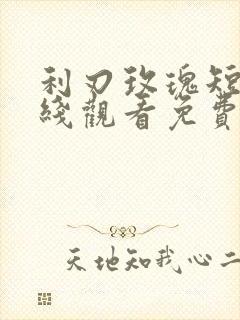 利刃玫瑰短
綫觀看免費
天地知我心二